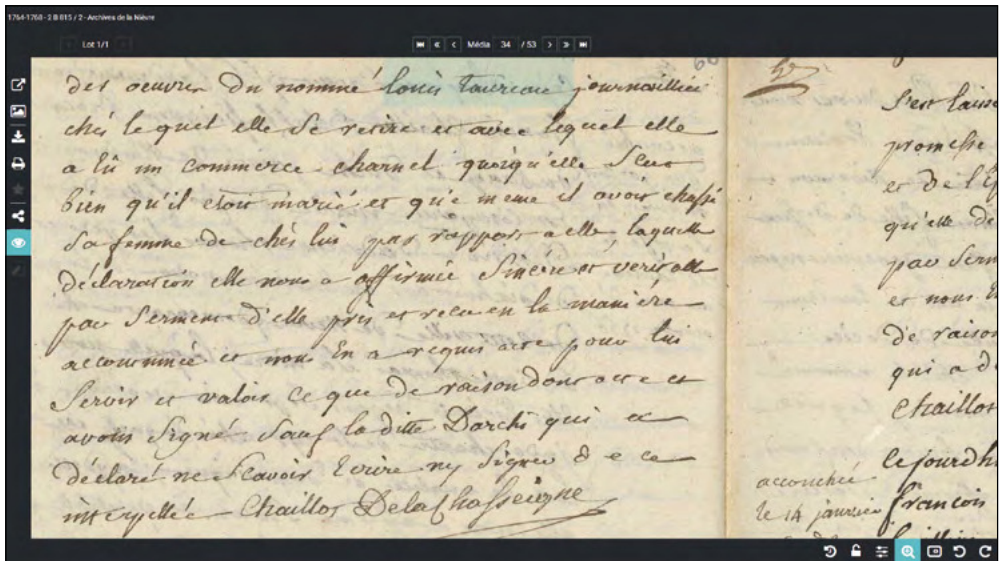 1764-1768 - 2 B 815 / 2 - Archives de la Nièvre
Lot 1/1
Média 34 / 53
des oeuvres du nommé Louis Taureau journaillier
chés lequel elle se retire et avec lequel elle
a Eû un commerce charnel quoiqu'elle Scut
bien qu'il etoit marié et que meme il avoit chassé
Sa femme de chés lui par rapport a elle, laquelle
déclaration elle nous a affirmée Sincére et veritable
par Serment d'elle pris et recu en la maniére
accoutumée et nous En a requis acte pour lui
Servir et valoir Ce que de raison dont acte et
avons Signé Sauf la ditte Darchi qui a
déclaré ne Scavoir Ecrire ny Signer de ce
interpellée Chaillos Delachasseigne
S'est laisse
promesse
et De l'E
qu'elle De
par Serm
et nous E
De raison
qui a d
Chaillos
Ce jourdh
accouchée
le 14 janvier
francois